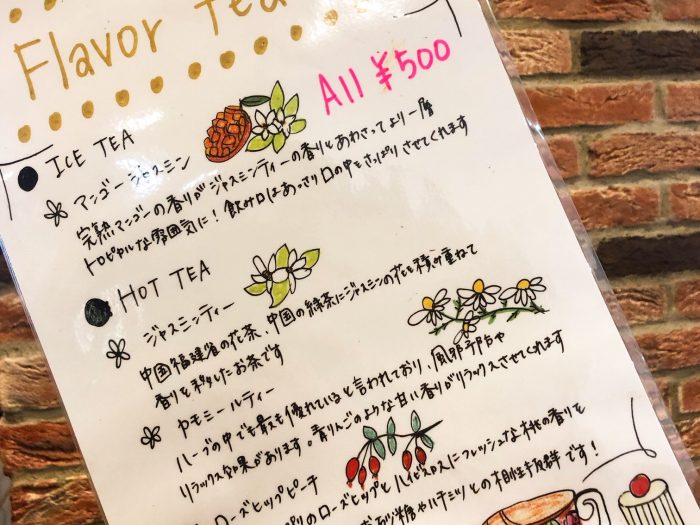 Flavor Tea
All ¥500
ICE TEA
マンゴージャスミン
完熟マンゴーの香りがジャスミンティーの香りとあわさってより一層
トロピカルな雰囲気に！飲み口はあっさり口の中をさっぱりさせてくれます
HOT TEA
ジャスミンティー
中国福建省の花茶、中国の緑茶にジャスミンの花を積み重ねて
香りを移したお茶です
カモミールティー
ハーブの中でも最も優れていると言われており、風邪予防や
リラックス効果があります。青りんごのような甘い香りがリラックスさせてくれます
ローズヒップピーチ
のローズヒップとハイビスカスにフレッシュな桃の香りを
砂糖やハチミツとの相性抜群です！